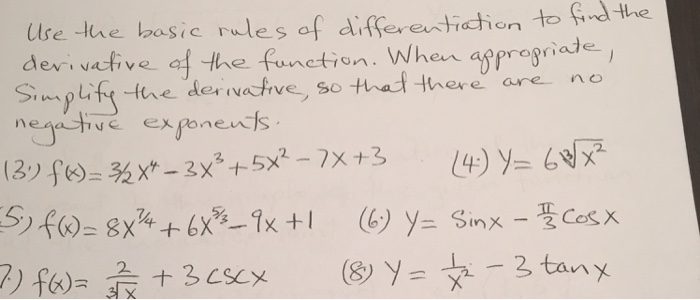 Use the basic rules of differentiation to find the
derivative of the function. When appropriate,
Simplify the derivative, so that there are no
negative exponents.
(3.) f(x) = 3/2 x⁴ - 3x³ + 5x² - 7x + 3 (4.) y = 6∛x²
5.) f(x) = 8x^7/4 + 6x^5/3 - 9x + 1 (6.) y = Sinx - π/3 Cosx
7.) f(x) = 2/∛x + 3 cscx (8.) y = 1/x² - 3 tanx